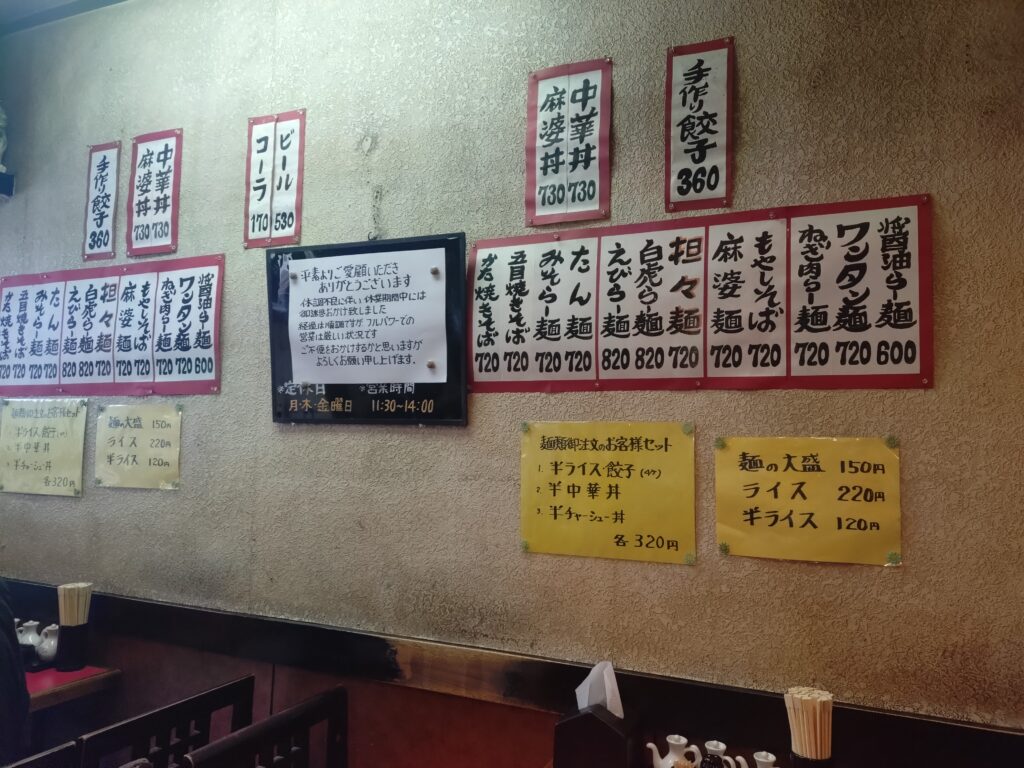 手作り餃子 360
中華丼 730
麻婆丼 730
ビール 530
コーラ 170
中華丼 730
麻婆丼 730
手作り餃子 360
醤油らー麺 600
ワンタン麺 720
ねぎ肉らー麺 720
もやしそば 720
麻婆麺 720
担々麺 720
白虎らー麺 820
えびらー麺 820
たん麺 720
みそらー麺 720
五目焼きそば 720
かた焼きそば 720
麺類御注文のお客様セット
1. 半ライス・餃子(4ケ)
2. 半中華丼
3. 半チャーシュー丼
各320円
麺の大盛 150円
ライス 220円
半ライス 120円
平素よりご愛顧いただき
ありがとうございます
体調不良に伴い休業期間中には
御迷惑おかけ致しました
経過は順調ですがフルパワーでの
営業は厳しい状況です
ご不便をおかけするかと思いますが
よろしくお願い申し上げます。
※定休日 ※営業時間
月・木・金曜日 11:30~14:00
醤油らー麺 600
ワンタン麺 720
ねぎ肉らー麺 720
もやしそば 720
麻婆麺 720
担々麺 720
白虎らー麺 820
えびらー麺 820
たん麺 720
みそらー麺 720
五目焼きそば 720
かた焼きそば 720
麺類御注文のお客様セット
1. 半ライス・餃子(4ケ)
2. 半中華丼
3. 半チャーシュー丼
各320円
麺の大盛 150円
ライス 220円
半ライス 120円